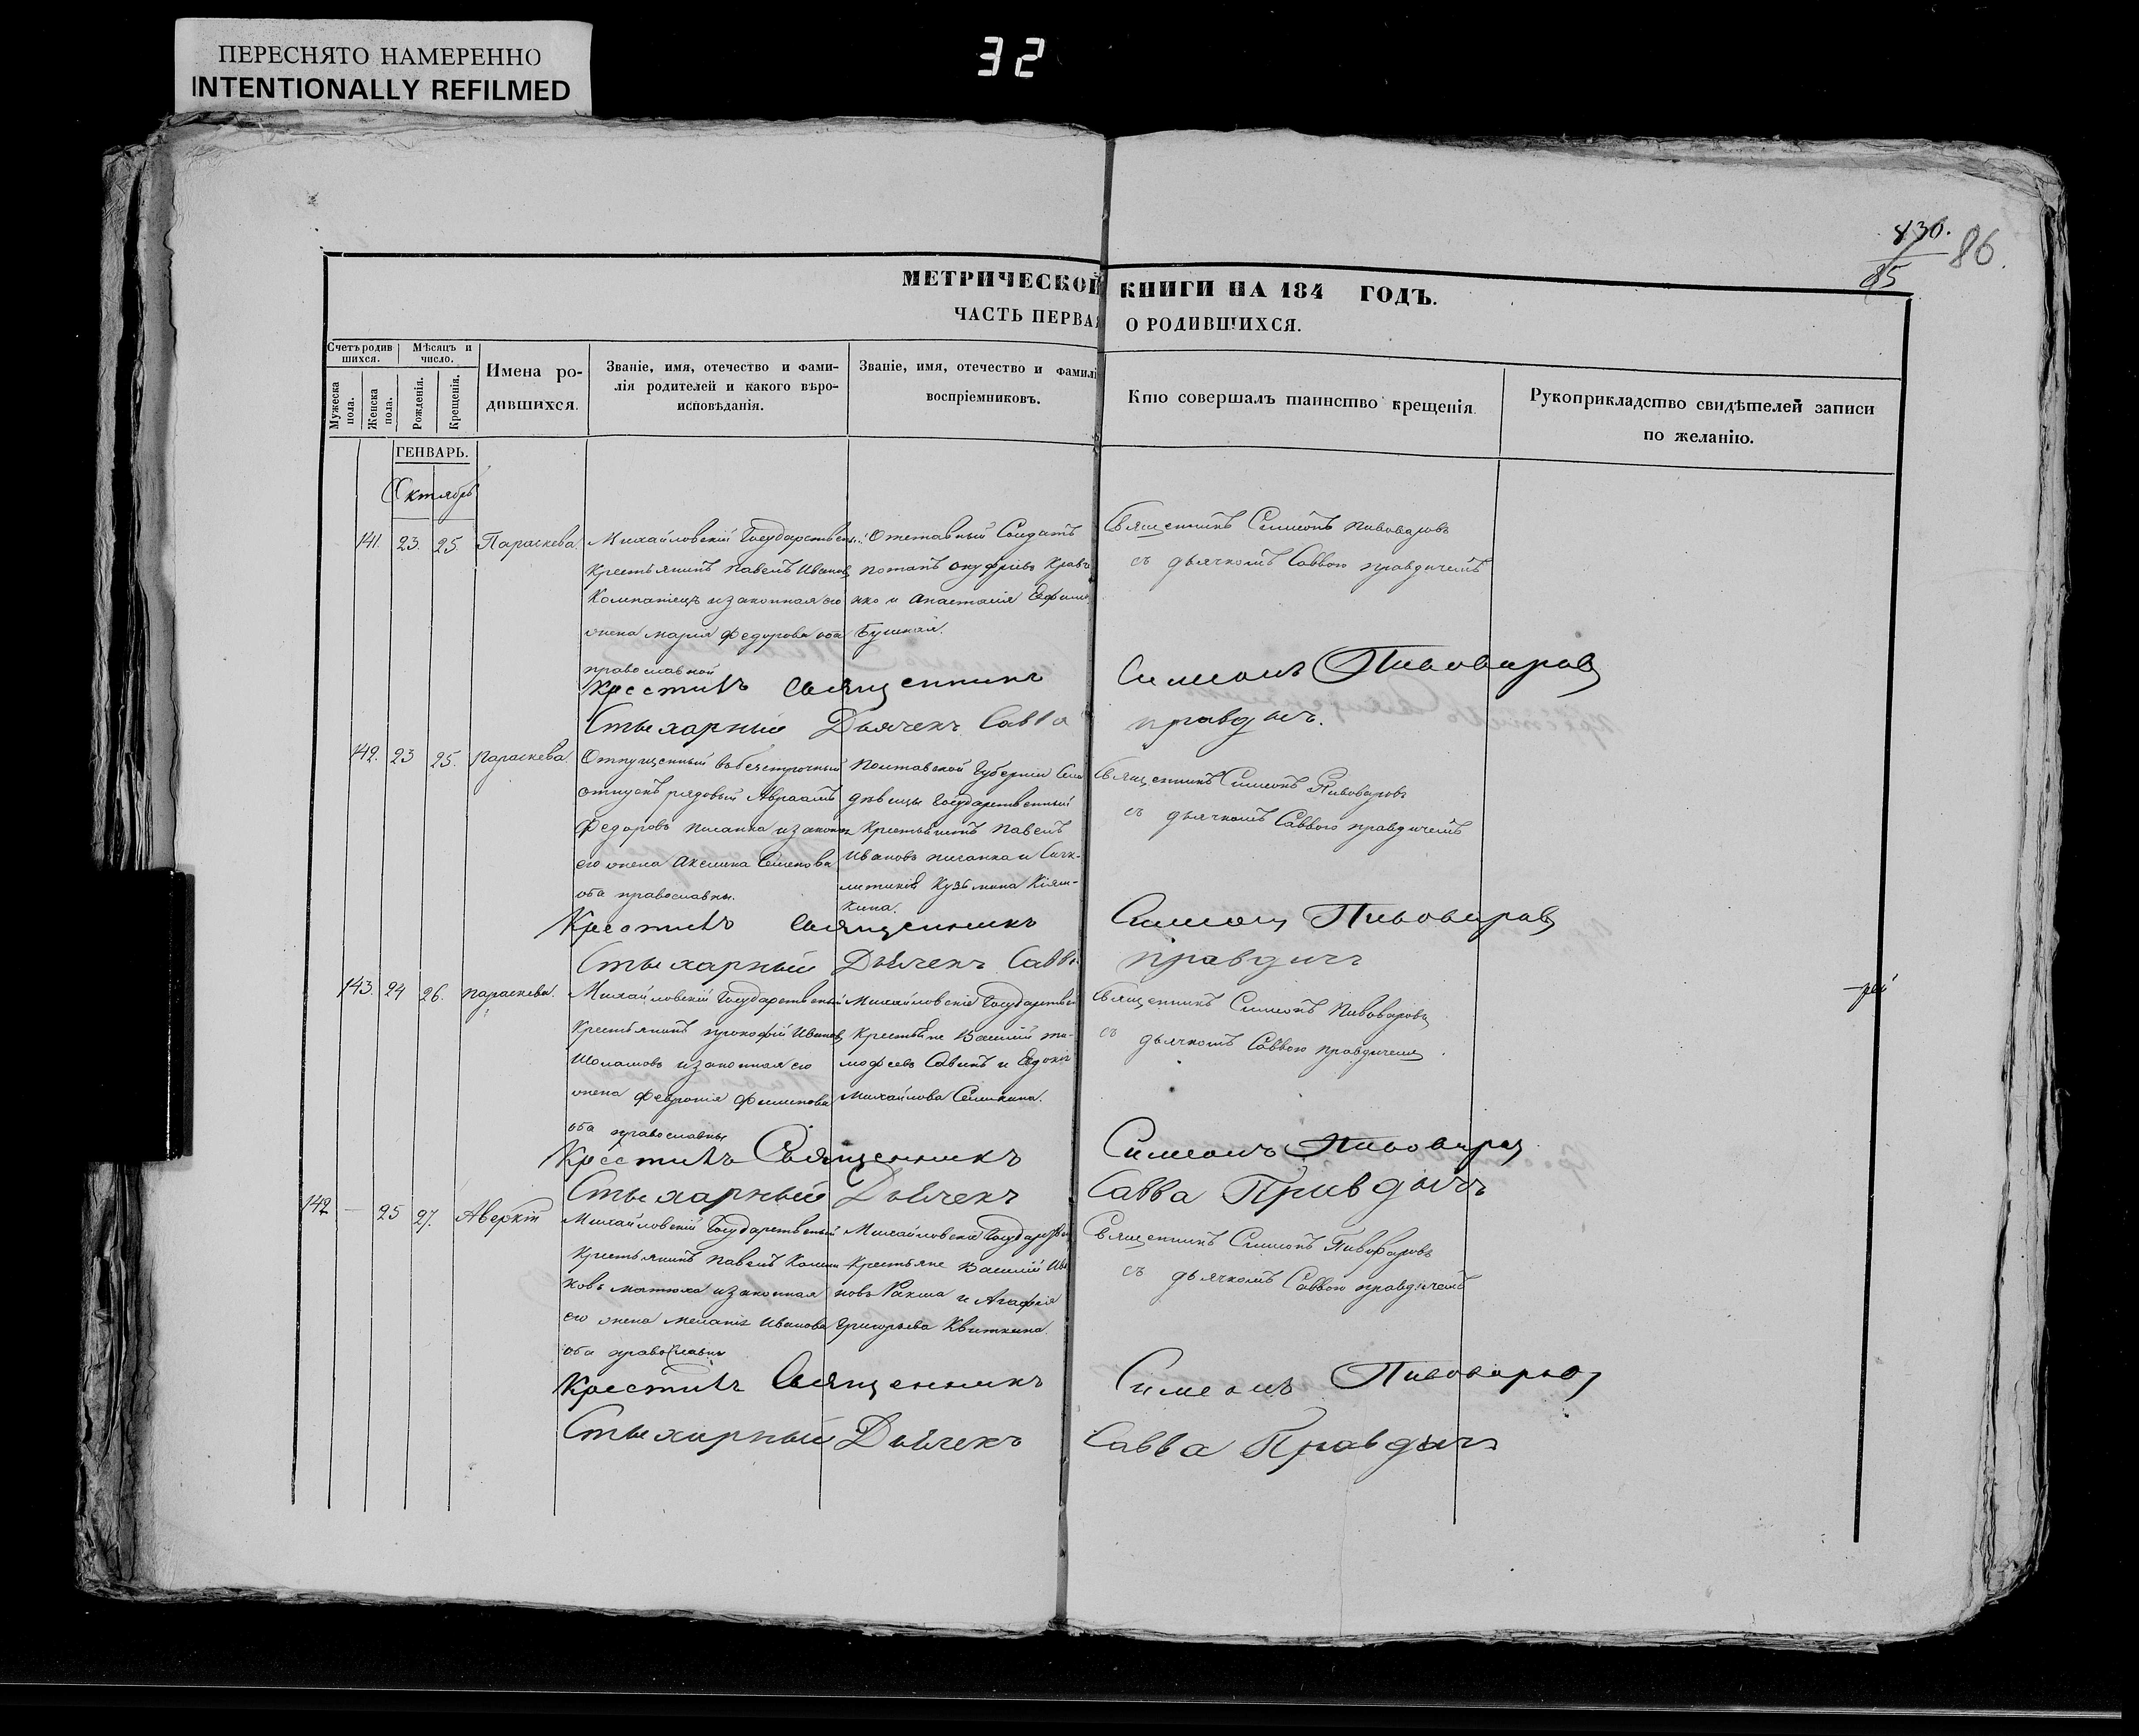 ПЕРЕСНЯТО НАМЕРЕННО
INTENTIONALLY REFILMED
32
130.
85
86.
МЕТРИЧЕСКОЙ КНИГИ НА 184 ГОДЪ.
ЧАСТЬ ПЕРВАЯ О РОДИВШИХСЯ.
Счетъ родив
шихся.
Мужеска
пола.
Женска
пола.
Мѣсяцъ и
число.
Рожденія.
Крещенія.
Имена ро-
дившихся.
Званіе, имя, отечество и фами-
лія родителей и какого вѣро-
исповѣданія.
Званіе, имя, отечество и фамилі
воспріемниковъ.
Кто совершалъ таинство крещенія.
Рукоприкладство свидѣтелей записи
по желанію.
ГЕНВАРЬ.
Октябрь
141. 23. 25. Параскева.
Михайловскій Государствен
Крестьянинъ Павелъ Ивановъ
Компаніецъ и законная его
жена Марія Федорова оба
православной
Отставный Солдатъ
Потапъ Онуфріевъ Кравч
нко и Анастасія
Священникъ Симеонъ Пивоваровъ
съ дьячкомъ Саввою Правдичемъ
Крестилъ Священникъ Симеонъ Пивоваровъ
Стыхарный Дьячекъ Савва Правдичъ.
142. 23 25. Параскева.
Отпущенный въ безсрочный
отпускъ рядовый Авраамъ
Федоровъ Писанка и законная
его жена Акелина Семенова
оба православны.
Полтавской Губерніи
Государственный
Крестьянинъ Павелъ
Ивановъ Писанка и
Кузьмина
кина.
Священникъ Симеонъ Пивоваровъ
съ дьячкомъ Саввою Правдичемъ
Крестилъ Священникъ Симеонъ Пивоваровъ
Стыхарный Дьячекъ Савва Правдичъ
143. 24 26. Параскева.
Михайловскій Государственный
Крестьянинъ Прокофій Ивановъ
Шоломовъ и законная его
жена Февронія Филипова
оба православны
Михайловскіе Государствен
Крестьяне Василій Ти-
мофеевъ Савинъ и Евдокія
Михайлова Семикина.
Священникъ Симеонъ Пивоваровъ
съ дьячкомъ Саввою Правдичемъ
Крестилъ Священникъ Симеонъ Пивоваровъ
Стыхарный Дьячекъ Савва Правдичъ
142 — 25 27. Аверкій
Михайловскій Государственный
Крестьянинъ Павелъ
ковъ Матюха и законная
его жена Меланія Иванова
оба православны
Михайловскіе Государствен
Крестьяне Василій Ива
новъ Ракша и Агафія
Григорьева Квиткина.
Священникъ Симеонъ Пивоваровъ
съ дьячкомъ Саввою Правдичемъ
Крестилъ Священникъ Симеонъ Пивоваровъ
Стыхарный Дьячекъ Савва Правдичъ